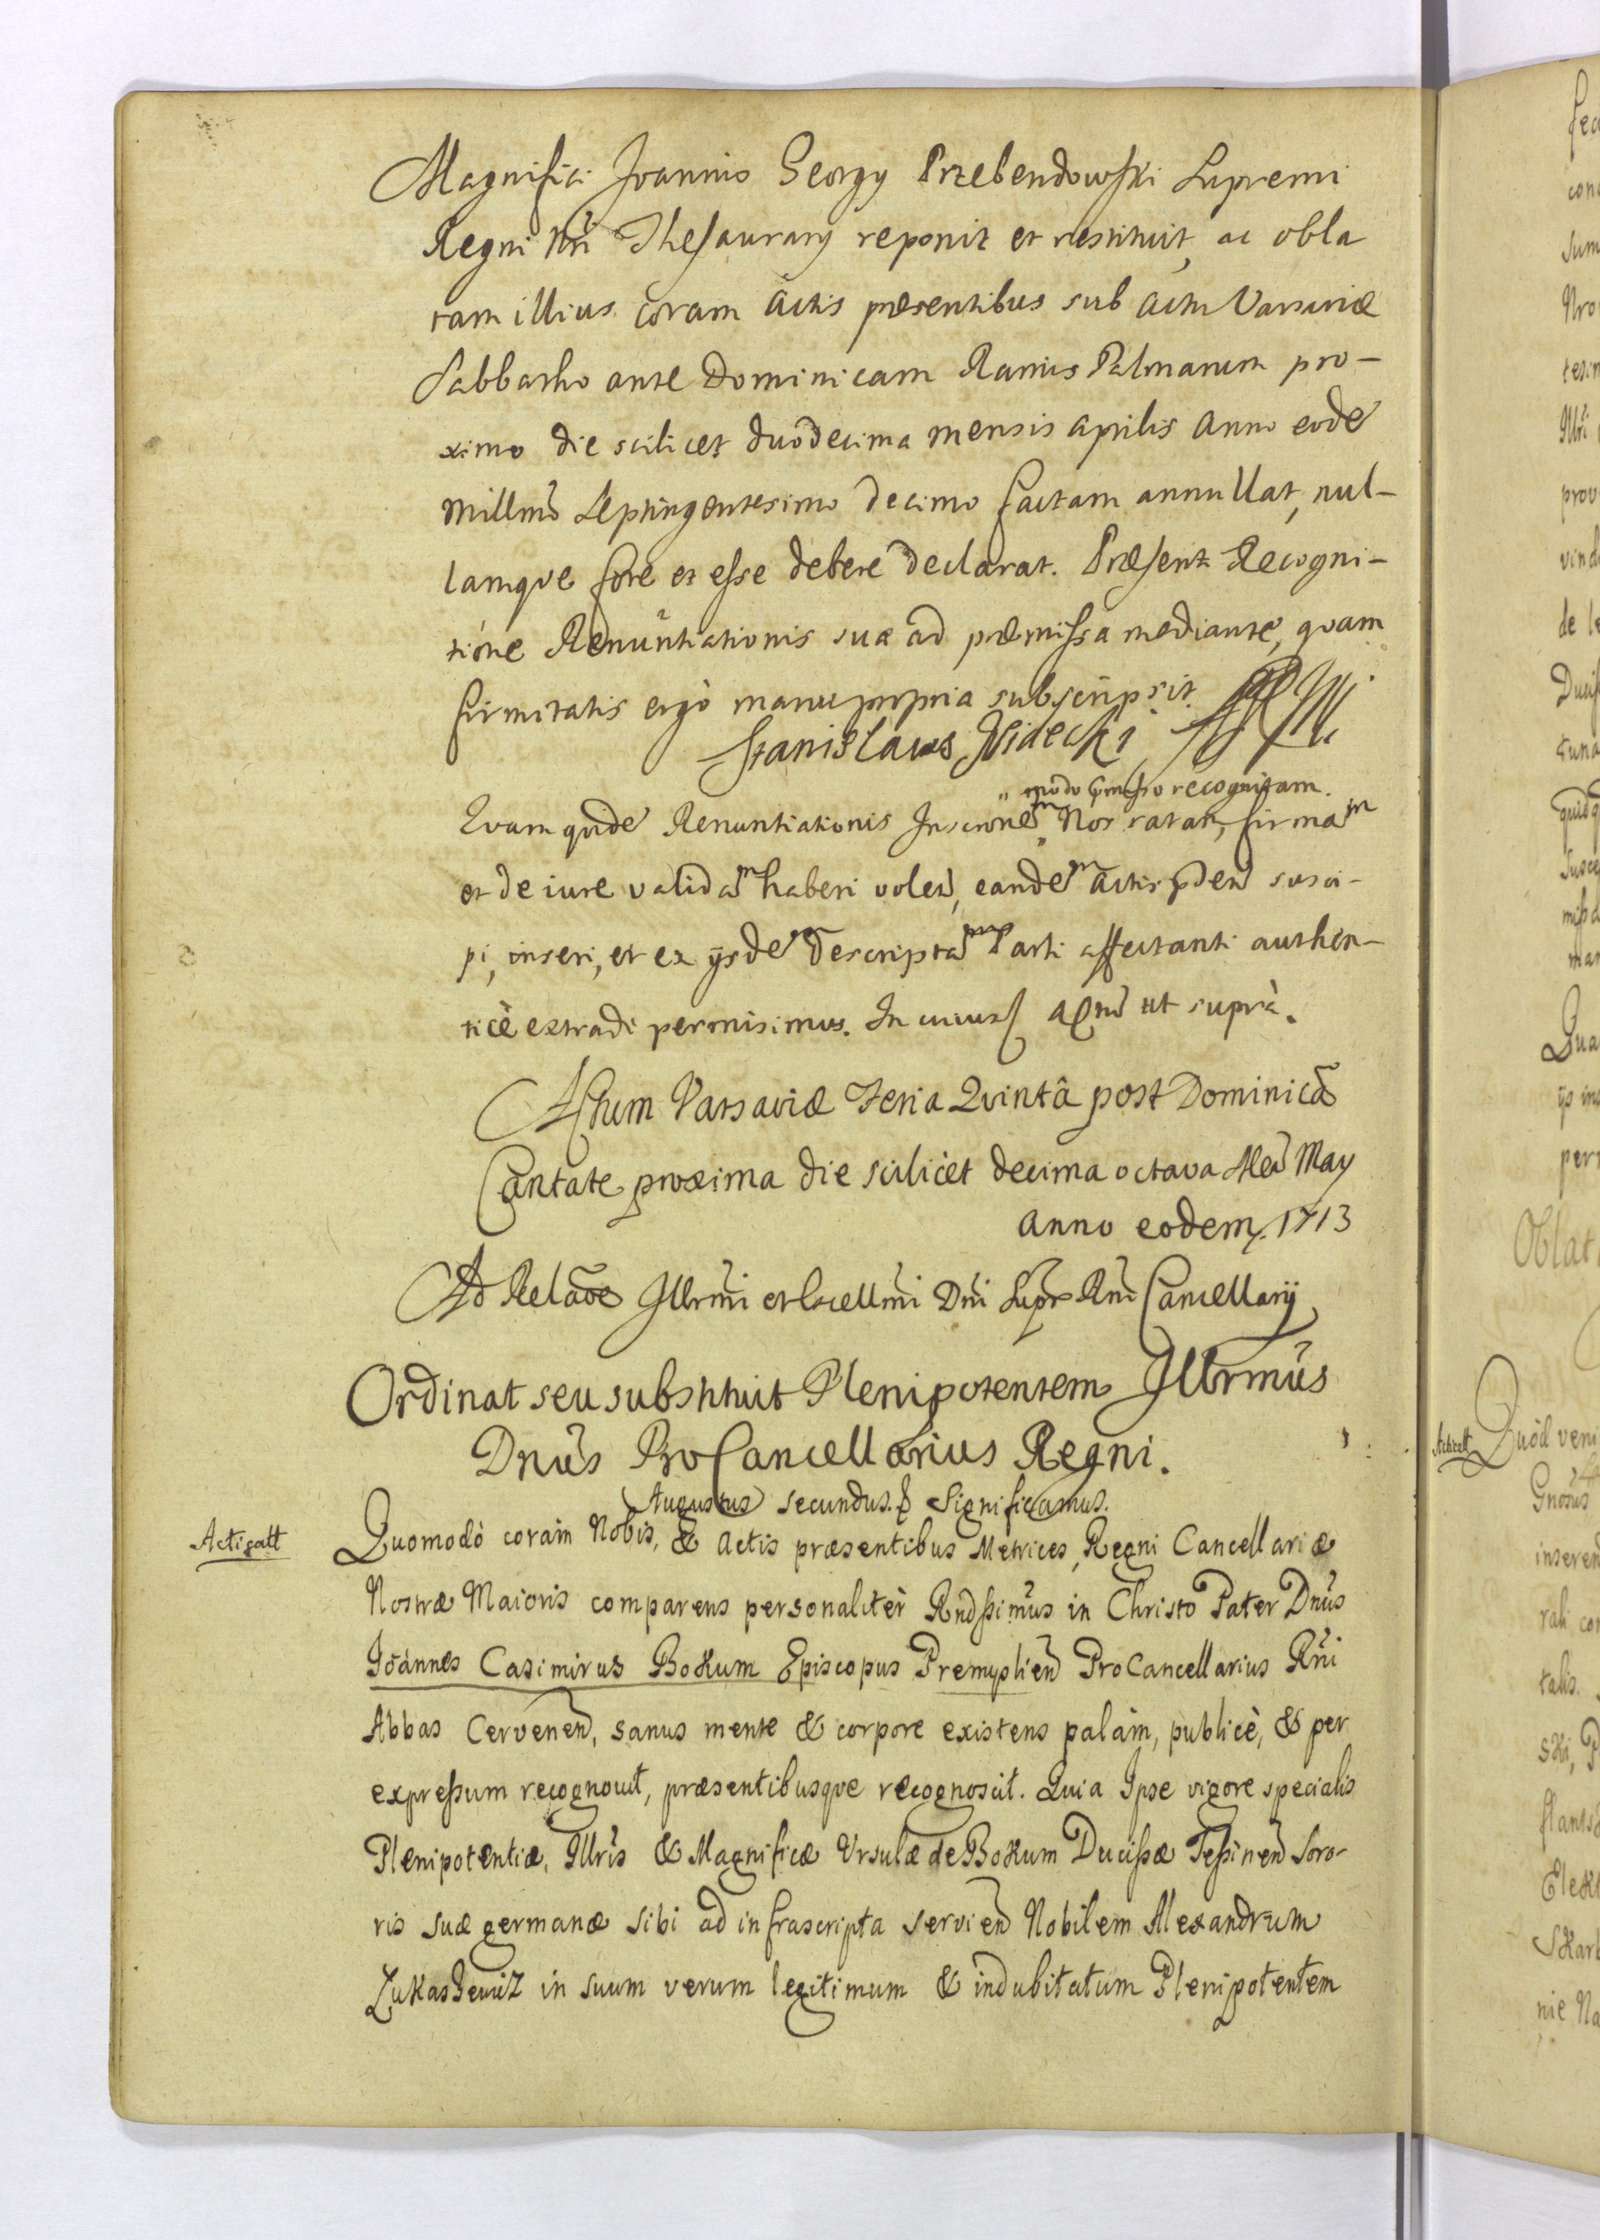 Magnifici Joannis Georgy Przebendowski Supremi
Regni Nri Thesaurary reponit et restituit, ac obla
tam illius coram Actis præsentibus sub actu Varsaviæ
Sabbatho ante Dominicam Ramis Palmarum pro-
ximo die scilicet duodecima mensis aprilis Anno eode
millmo Septingentesimo decimo factam annullat, nul-
lamque fore et esse debere declarat. Præsenti Recogni-
tione Renuntiationis suæ ad præmissa mediante, quam
firmitatis ergò manu propria subscripsit.
Stanislaus Nidecki
modo præmisso recognitam.
Quam quide Renuntiationis Inscrione Nos ratam, firmam
et de iure validam haberi volen, eandem Actis pden susci-
pi, inseri, et ex ysdem descriptam Parti affectanti authen-
ticè extradi permisimus. In cuius Actu ut suprà.
Actum Varsaviæ Feria Quintâ post Dominicã
Cantate proxima die scilicet decima octava Men May
anno eodem. 1713
Ad Relaõe Illrmi et Excellmi Dni Supr Rni Cancellarij
Ordinat seu substituit Plenipotentem Illrmus
Dnus ProCancellarius Regni.
Augustus secundus. Significamus.
Acticatt
Quomodò coram Nobis, & Actis præsentibus Metrices Regni Cancellariæ
Nostræ Maioris comparens personalitèr Rndssimus in Christo Pater Dnus
Joannes Casimirus Bokum Episcopus Premyslien ProCancellarius Rni
Abbas Cervenen, sanus mente & corpore existens palàm, publicè, & per
expressum recognovit, præsentibusque recognoscit. Quia Ipse vigore specialis
Plenipotentiæ, Illris & Magnificæ Ursulæ de Bokum Ducissæ Tessinen Soro-
ris suæ germanæ sibi ad infrascripta servien Nobilem Alexandrum
Lukaszewicz in suum verum legitimum & indubitatum Plenipotentem